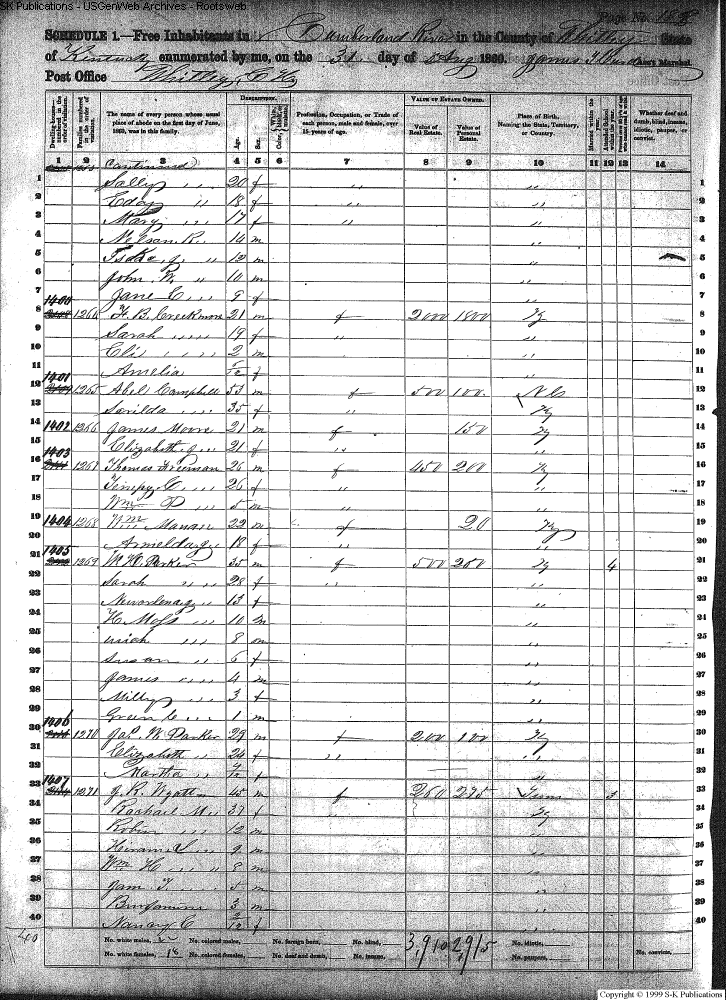 S-K Publications - USGenWeb Archives - Rootsweb
Page No.
SCHEDULE 1.—Free Inhabitants in Cumberland River in the County of Whitley State
of Kentucky enumerated by me, on the 31 day of Aug 1860. Ass't Marshal.
Post Office Whitley C H
DESCRIPTION. VALUE OF ESTATE OWNED.
Dwelling-houses—numbered in the order of visitation. Families numbered in the order of visitation. The name of every person whose usual place of abode on the first day of June, 1860, was in this family. Age. Sex. Color Profession, Occupation, or Trade of each person, male and female, over 15 years of age. Value of Real Estate. Value of Personal Estate. Place of Birth, Naming the State, Territory, or Country. Married within the year. Attended School within the year. Whether deaf and dumb, blind, insane, idiotic, pauper, or convict.
1 2 3 4 5 6 7 8 9 10 11 12 13 14
Continued
1 Sally " 20 f " " 1
2 Eday " 18 f " " 2
3 Mary " 17 f " " 3
4 Nelson R. " 14 m " 4
5 12 m " 5
6 John W. " 10 m " 6
7 Jane C. " 9 f " 7
8 1400 1264 F. B. Creekmore 21 m f 2000 1800 Ky 8
9 Sarah " 19 f " " 9
10 Eli " 2 m " 10
11 Amelia f " 11
12 1401 1265 Abel Campbell 53 m f 500 100 N C 12
13 Sarilda " 35 f " Ky 13
14 1402 1266 James Moore 21 m f 150 Ky 14
15 Elizabeth J. " 21 f " " 15
16 1403 1267 Thomas Freeman 26 m f 450 200 Ky 16
17 C. " 26 f " " 17
18 Wm P. " 5 m " 18
19 1404 1268 Wm 22 m f 20 Ky 19
20 " 18 f " " 20
21 1405 1269 W. H. Parker 35 m f 500 250 Ky 4 21
22 Sarah " 28 f " " 22
23 " 13 f " 23
24 H. Moss " 10 m " 24
25 " 8 m " 25
26 Susan " 6 f " 26
27 James " 4 m " 27
28 Milly " 3 f " 28
29 Green C. " 1 m " 29
30 1406 1270 Jas. W. Parker 29 m f 200 100 Ky 30
31 Elizabeth " 24 f " " 31
32 Martha " f " 32
33 1407 1271 J. R. Wyatt 45 m f 260 295 Tenn 3 33
34 Rachael M. " 37 f " Ky 34
35 Robin " 12 m " 35
36 Hiram S. " 9 m " 36
37 Wm H. " 8 m " 37
38 Jam T. " 5 m " 38
39 Benjamin " 3 m " 39
40 Nancy C " f " 40
40 No. white males, 22 No. colored males, No. foreign born, No. blind, 3,910 2,915 No. idiotic, No. convicts,
No. white females, 18 No. colored females, No. deaf and dumb, No. insane, No. paupers,
Copyright © 1999 S-K Publications